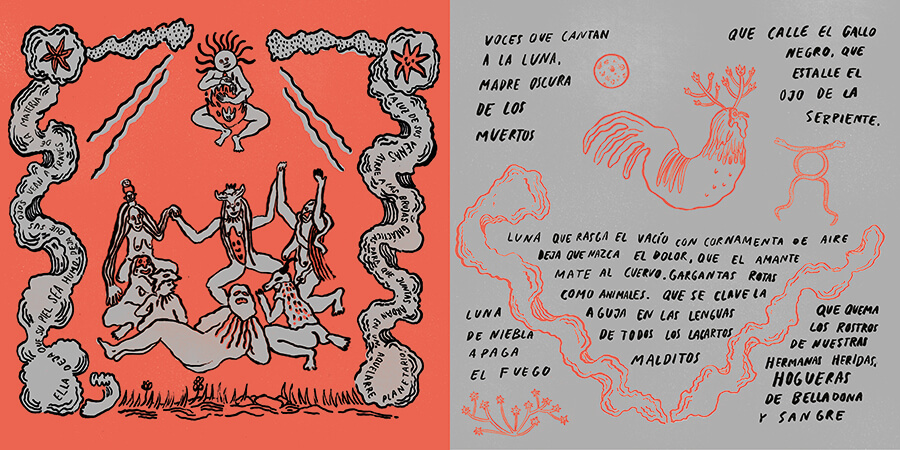 ELLA DEJA QUE SU PIEL SEA HUMO, DEJA QUE SUS OJOS VEAN A TRAVÉS DE LA MATERIA
LUZ DE SUS VENAS ABRE BRUJAS GALÁCTICAS PARA QUE JUNTAS ARDAN EN AQUELARRES PLANETARIOS
VOCES QUE CANTAN
A LA LUNA,
MADRE OSCURA
DE LOS
MUERTOS
QUE CALLE EL GALLO
NEGRO, QUE
ESTALLE EL
OJO DE LA
SERPIENTE.
LUNA QUE RASGA EL VACÍO CON CORNAMENTA DE AIRE
DEJA QUE NAZCA EL DOLOR, QUE EL AMANTE
MATE AL CUERVO. GARGANTAS ROTAS
COMO ANIMALES. QUE SE CLAVE LA
AGUJA EN LAS LENGUAS
DE TODOS LOS LAGARTOS
MALDITOS
LUNA
DE NIEBLA
APAGA
EL FUEGO
QUE QUEMA
LOS ROSTROS
DE NUESTRAS
HERMANAS HERIDAS,
HOGUERAS
DE BELLADONA
Y SANGRE